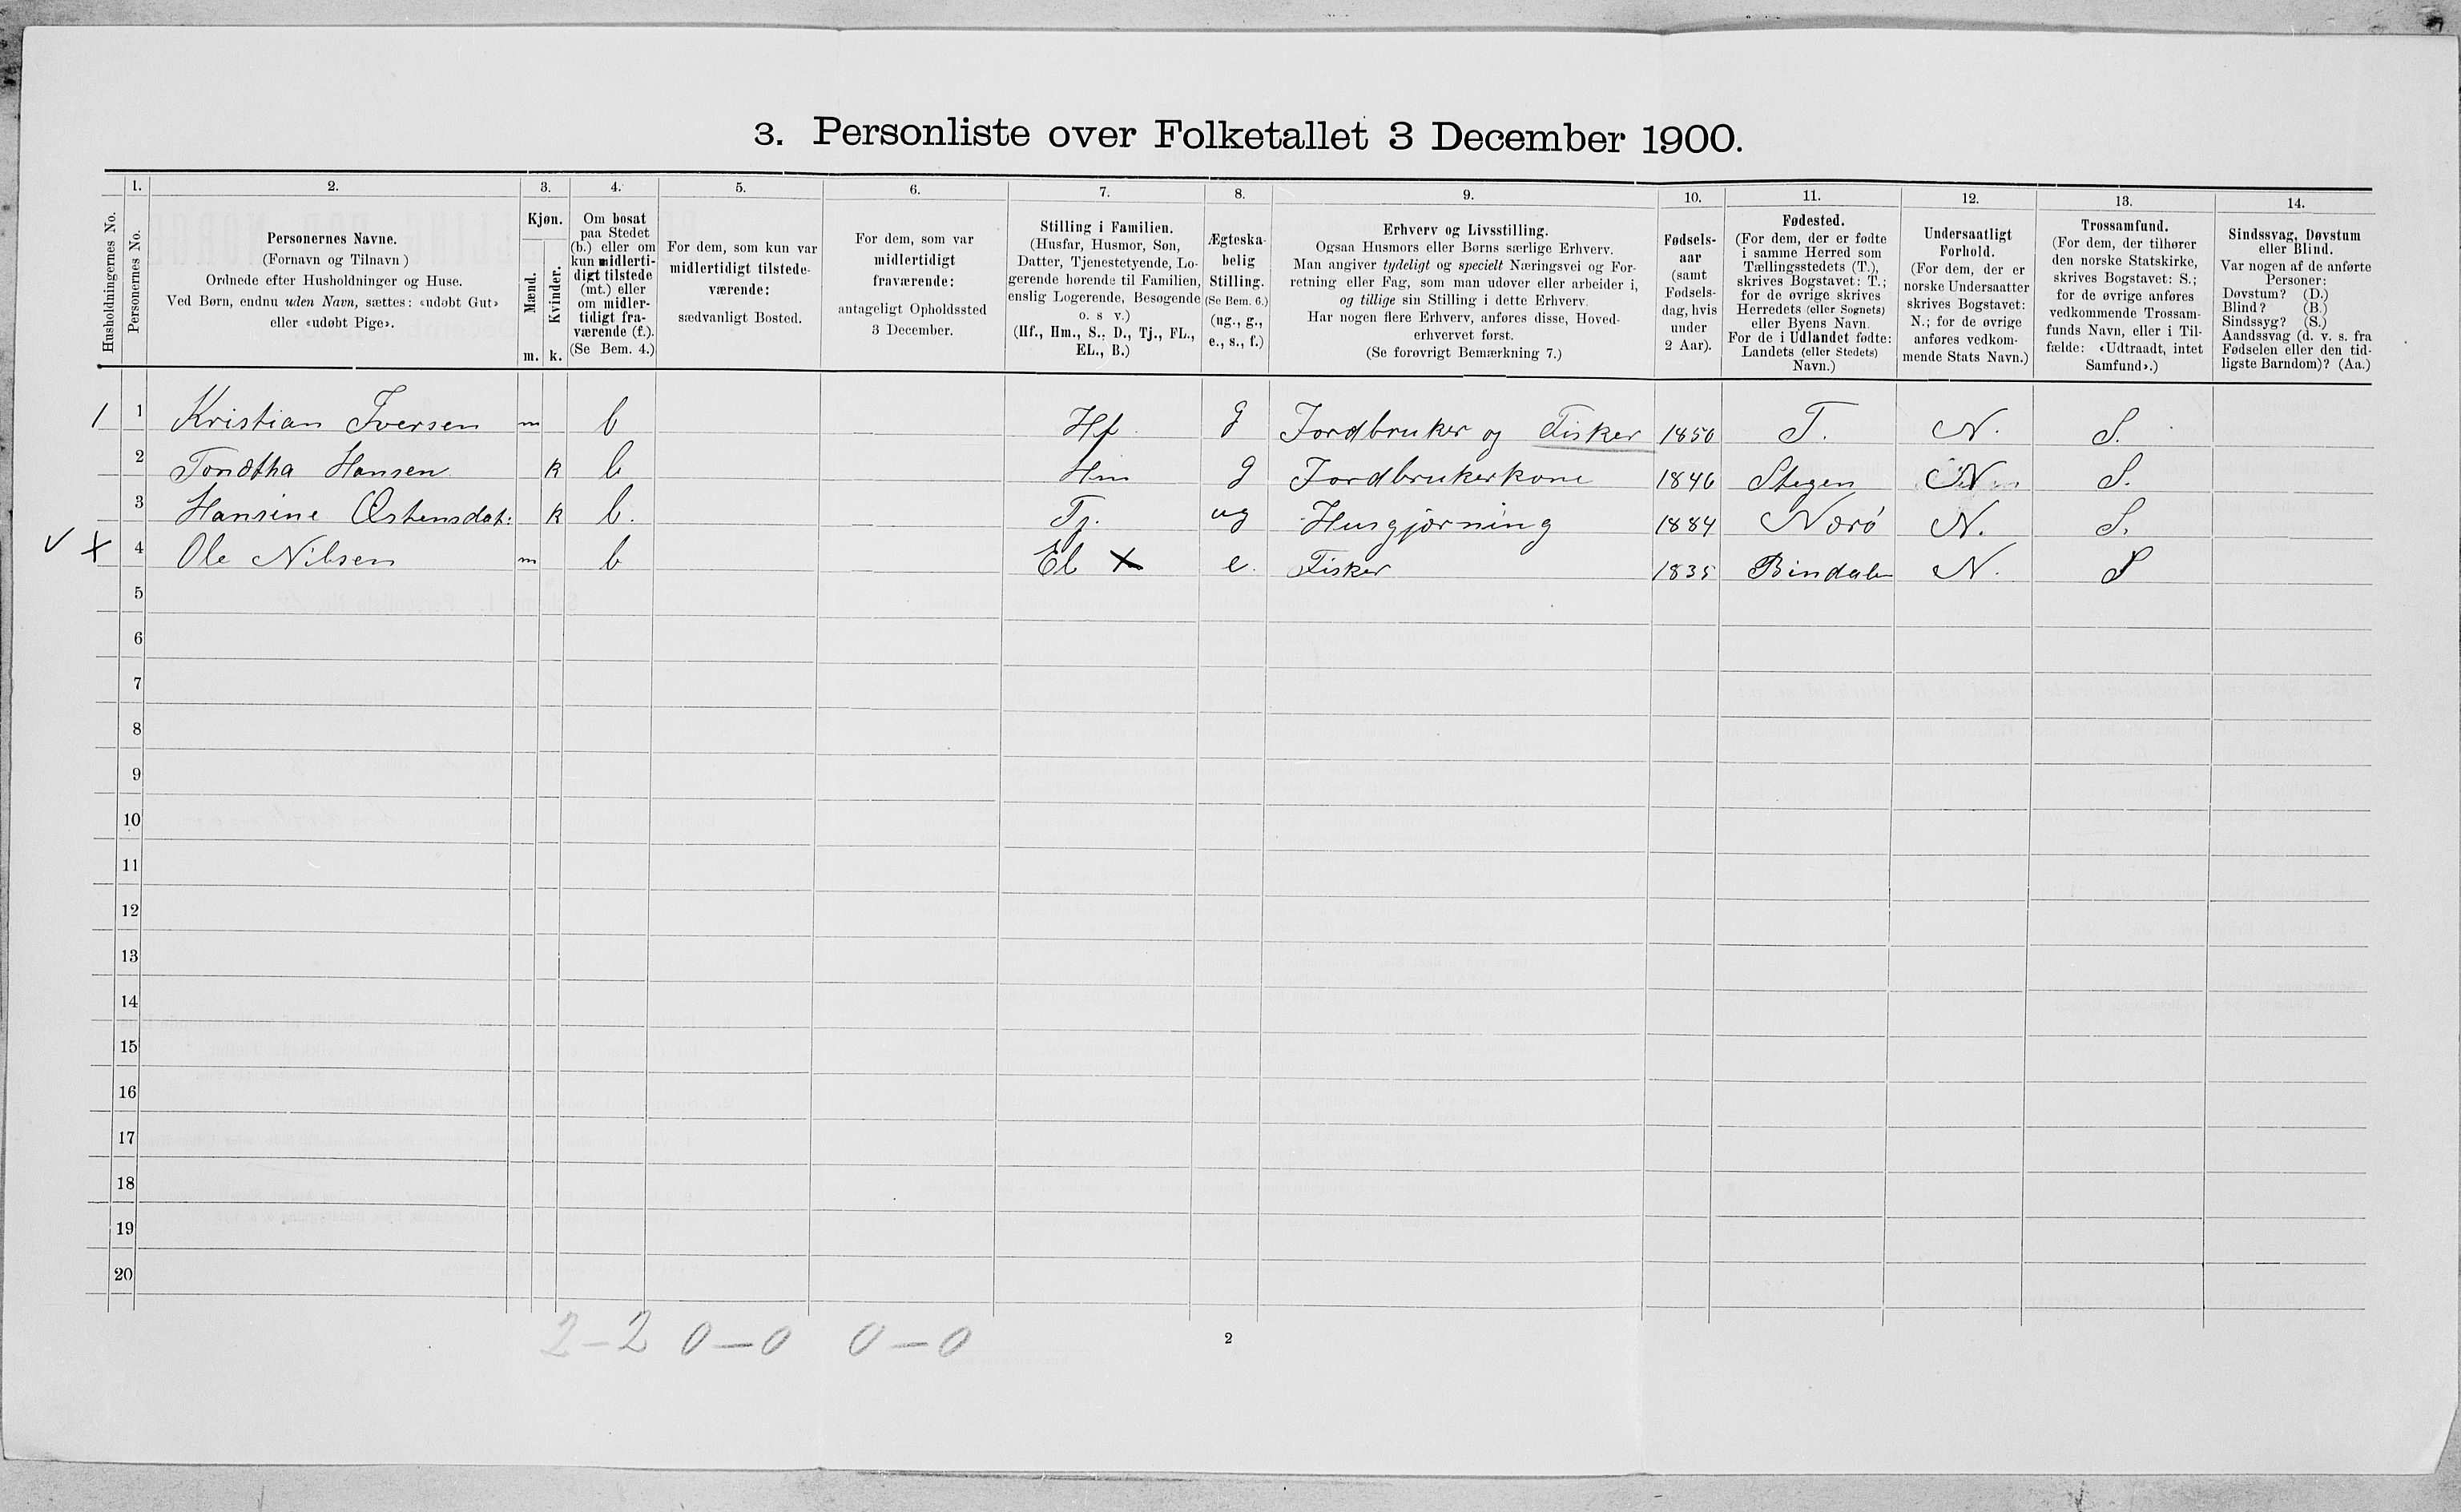 3. Personliste over Folketallet 3 December 1900.
Husholdningernes No.
1.
Personernes No.
2.
Personernes Navne.
(Fornavn og Tilnavn)
Ordnede efter Husholdninger og Huse.
Ved Børn, endnu uden Navn, sættes: «udøbt Gut»
eller «udøbt Pige».
3.
Kjøn.
Mænd.
Kvinder.
m. k.
4.
Om bosat
paa Stedet
(b.) eller om
kun midlerti-
digt tilstede
(mt.) eller
om midler-
tidigt fra-
værende (f.).
(Se Bem. 4.)
5.
For dem, som kun var
midlertidigt tilstede-
værende:
sædvanligt Bosted.
6.
For dem, som var
midlertidigt
fraværende:
antageligt Opholdssted
3 December.
7.
Stilling i Familien.
(Husfar, Husmor, Søn,
Datter, Tjenestetyende, Lo-
gerende hørende til Familien,
enslig Logerende, Besøgende
o. s v.)
(Hf., Hm., S., D., Tj., FL.,
EL., B.)
8.
Ægteska-
belig
Stilling.
(Se Bem. 6.)
(ug., g.,
e., s., f.)
9.
Erhverv og Livsstilling.
Ogsaa Husmors eller Børns særlige Erhverv.
Man angiver tydeligt og specielt Næringsvei og For-
retning eller Fag, som man udøver eller arbeider i,
og tillige sin Stilling i dette Erhverv.
Har nogen flere Erhverv, anføres disse, Hoved-
erhvervet først.
(Se forøvrigt Bemærkning 7.)
10.
Fødsels-
aar
(samt
Fødsels-
dag, hvis
under
2 Aar).
11.
Fødested.
(For dem, der er fødte
i samme Herred som
Tællingsstedets (T.),
skrives Bogstavet: T.;
for de øvrige skrives
Herredets (eller Sognets)
eller Byens Navn.
For de i Udlandet fødte:
Landets (eller Stedets)
Navn.)
12.
Undersaatligt
Forhold.
(For dem, der er
norske Undersaatter
skrives Bogstavet:
N.; for de øvrige
anføres vedkom-
mende Stats Navn.)
13.
Trossamfund.
(For dem, der tilhører
den norske Statskirke,
skrives Bogstavet: S.;
for de øvrige anføres
vedkommende Trossam-
funds Navn, eller i Til-
fælde: «Udtraadt, intet
Samfund».)
14.
Sindssvag, Døvstum
eller Blind.
Var nogen af de anførte
Personer:
Døvstum? (D.)
Blind? (B.)
Sindssyg? (S.)
Aandssvag (d. v. s. fra
Fødselen eller den tid-
ligste Barndom)? (Aa.)
1 1 Kristian Iversen m b Hf. g Jordbruker og Fisker 1850 T. N. S.
2 Hansen k b Hm g Jordbrukerkone 1846 Stegen N S.
3 Hansine Østensdat: k b. Tj. ug Husgjørning 1884 Nærö N. S.
✓ X 4 Ole Nilsen m b El X e. Fisker 1835 Bindalen N. S
5
6
7
8
9
10
11
12
13
14
15
16
17
18
19
20
2 - 2 0 - 0 0 - 0
2